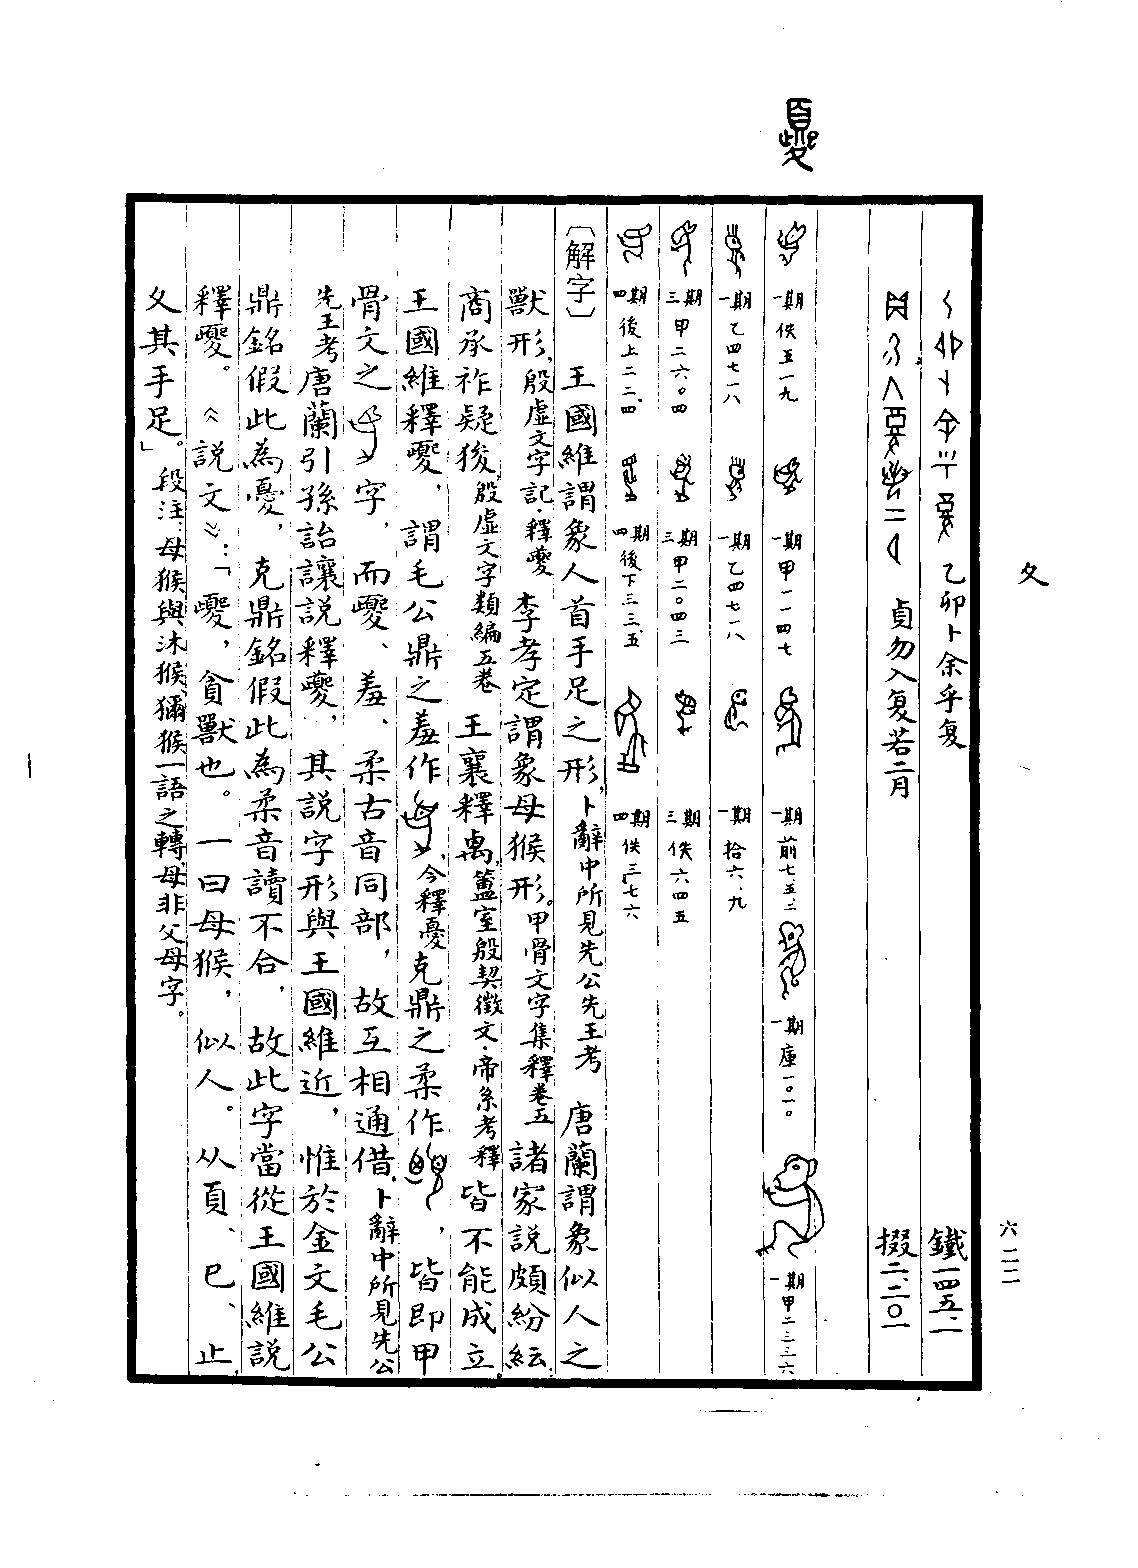 夔
夊
六二二
乙卯卜余乎复 鐵一四五.一
貞勿入复若二月 掇二.二〇一
一期 佚五一九 一期 甲一一四七 一期 前七.五.二 一期 庫一〇一〇 一期 甲二三三六
一期 乙四七一八 一期 乙四七一八 一期 拾六.九
三期 甲二六〇四 三期 甲二〇四三 三期 佚六四五
四期 後上二二.四 四期 後下三三.五 四期 佚三七六
〔解字〕 王國維謂象人首手足之形,卜辭中所見先公先王考 唐蘭謂象似人之
獸形,殷虛文字記·釋夒 李孝定謂象母猴形。甲骨文字集釋卷五 諸家說頗紛紜。
商承祚疑狻,殷虛文字類編五卷 王襄釋禼,簠室殷契徵文·帝系考釋 皆不能成立。
王國維釋夒,謂毛公鼎之羞作,今釋憂 克鼎之柔作,皆即甲
骨文之字,而夒、羞、柔古音同部,故互相通借,卜辭中所見先公
先王考 唐蘭引孫詒讓說釋夔,其說字形與王國維近,惟於金文毛公
鼎銘假此為憂,克鼎銘假此為柔音讀不合,故此字當從王國維說
釋夒。《說文》:「夒,貪獸也。一曰母猴,似人。从頁、巳、止、
夊其手足。」段注:母猴與沐猴、獼猴一語之轉,母非父母字。